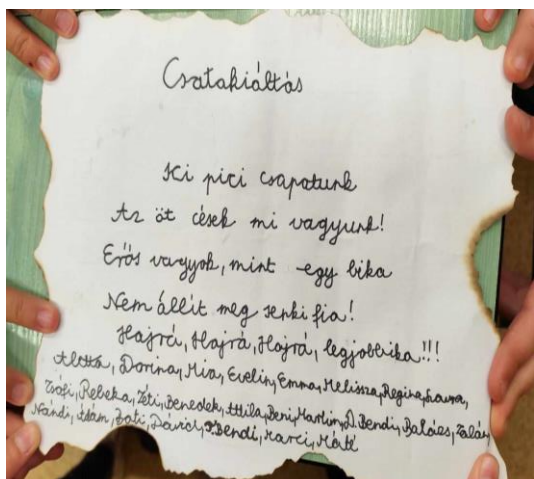 Csatakiáltás
Ki pici csapatunk
Az öt cések mi vagyunk!
Erős vagyok, mint egy bika
Nem állít meg senki fia!
Hajrá, Hajrá, Hajrá, legjobbika!!!
Dorina, Mia, Evelin, Emma, Melissza, Regina, Laura,
Zsófi, Rebeka, Zéti, Benedek, Attila, Beni, Martin, D.Bendi, Balázs, Zalán,
Nándi, Ádám, Zoti, Dávid, Bendi, Marci, Máté